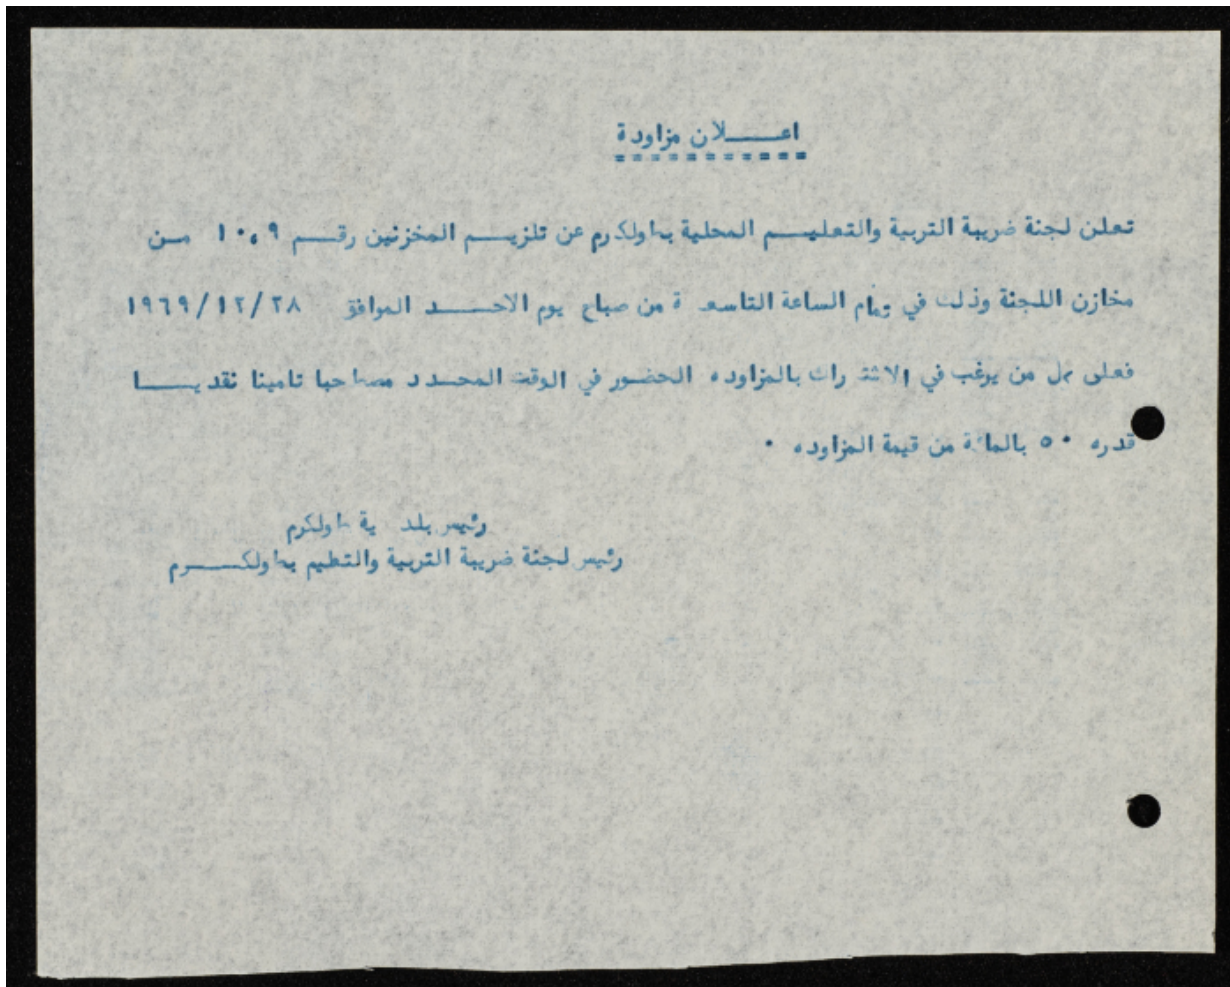 اعلان مزاودة
تعلن لجنة ضريبة التربية والتعليم المحلية بطولكرم عن تلزيم المخزنين رقم ٩ ، ١٠ من
مخازن اللجنة وذلك في تمام الساعة التاسعة من صباح يوم الاحد الموافق ١٩٦٩/١٢/٢٨
فعلى كل من يرغب في الاشتراك بالمزاوده الحضور في الوقت المحدد مصاحبا تامينا نقديا
قدره ٥٠ بالمائة من قيمة المزاوده ٠
رئيس بلدية طولكرم
رئيس لجنة ضريبة التربية والتعليم بطولكرم